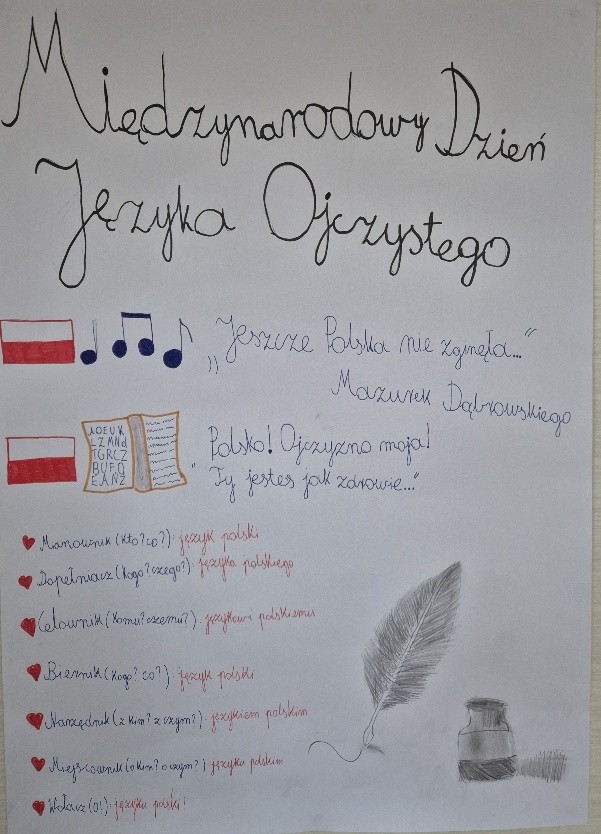 Międzynarodowy Dzień
Języka Ojczystego
„Jeszcze Polska nie zginęła..."
Mazurek Dąbrowskiego
"Polsko! Ojczyzno moja!
Ty jesteś jak zdrowie..."
Mianownik (kto? co?): język polski
Dopełniacz (kogo? czego?): języka polskiego
Celownik (komu? czemu?): językowi polskiemu
Biernik (kogo? co?): język polski
Narzędnik (z kim? z czym?): językiem polskim
Miejscownik (o kim? o czym?) języku polskim
Wołacz (o!): języku polski!